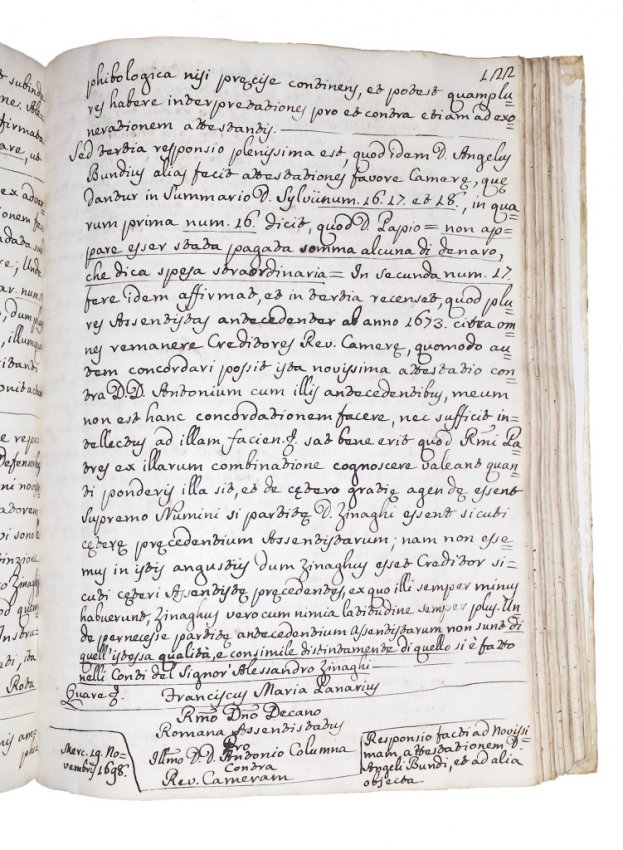 122
phibologica nisi pręcise continens, et potest quamplu=
res habere interpretationes pro et contra etiam ad exo=
nerationem attestantis.
Sed tertia responsio plenissima est, quod idem D. Angelus
Bundius alias fecit attestationes favore Camerę, quę
dantur in Summario D. Sylvij num. 16. 17. et 18., in qua
rum prima num. 16. dicit, quod D. Papio = non ap=
pare esser stata pagata somma alcuna di denaro,
che dica spesa straordinaria = In secunda num. 17
fere idem affirmat, et in tertia recenset, quod plu=
res Assentistas antecedenter ab anno 1673. citra om=
nes remanere Creditores Rev. Camerę, quomodo au=
tem concordari possit ista novissima attestatio con=
tra D.D. Antonium cum illis antecedentibus, meum
non est hanc concordationem facere, nec sufficit in=
tellectus ad illam facien. sat bene erit quod Rm̃i Pa=
tres ex illarum combinatione cognoscere valeant quan=
ti ponderis illa sit, et de cętero gratię agendę essent
Supremo Numini si partitę D. Zinaghi essent sicuti
cęterę pręcedentium Assentistarum; nam non esse=
mus in istis angustiis dum Zinaghus esset Creditor si=
cuti cęteri Assentistę pręcedentes, ex quo illi semper minus
habuerunt, Zinaghus vero cum nimia latitudine semper plus. Un
de pernecesse partitę antecedentium Assentistarum non sunt di
quell'istessa qualità, e consimile distintamente di quello si è fatto
nelli Conti del Signor Alessandro Zinaghi
Quare &c. Franciscus Maria Panarius
Rm̃o Dño Decano
Romana Assentistatus
Pro
Illm̃o D.D. Antonio Columna
Contra
Rev. Cameram
Merc. 19. No=
vembris 1698.
Responsio facti ad Novissi
mam attestationem D.
Angeli Bundi, et ad alia
objecta.